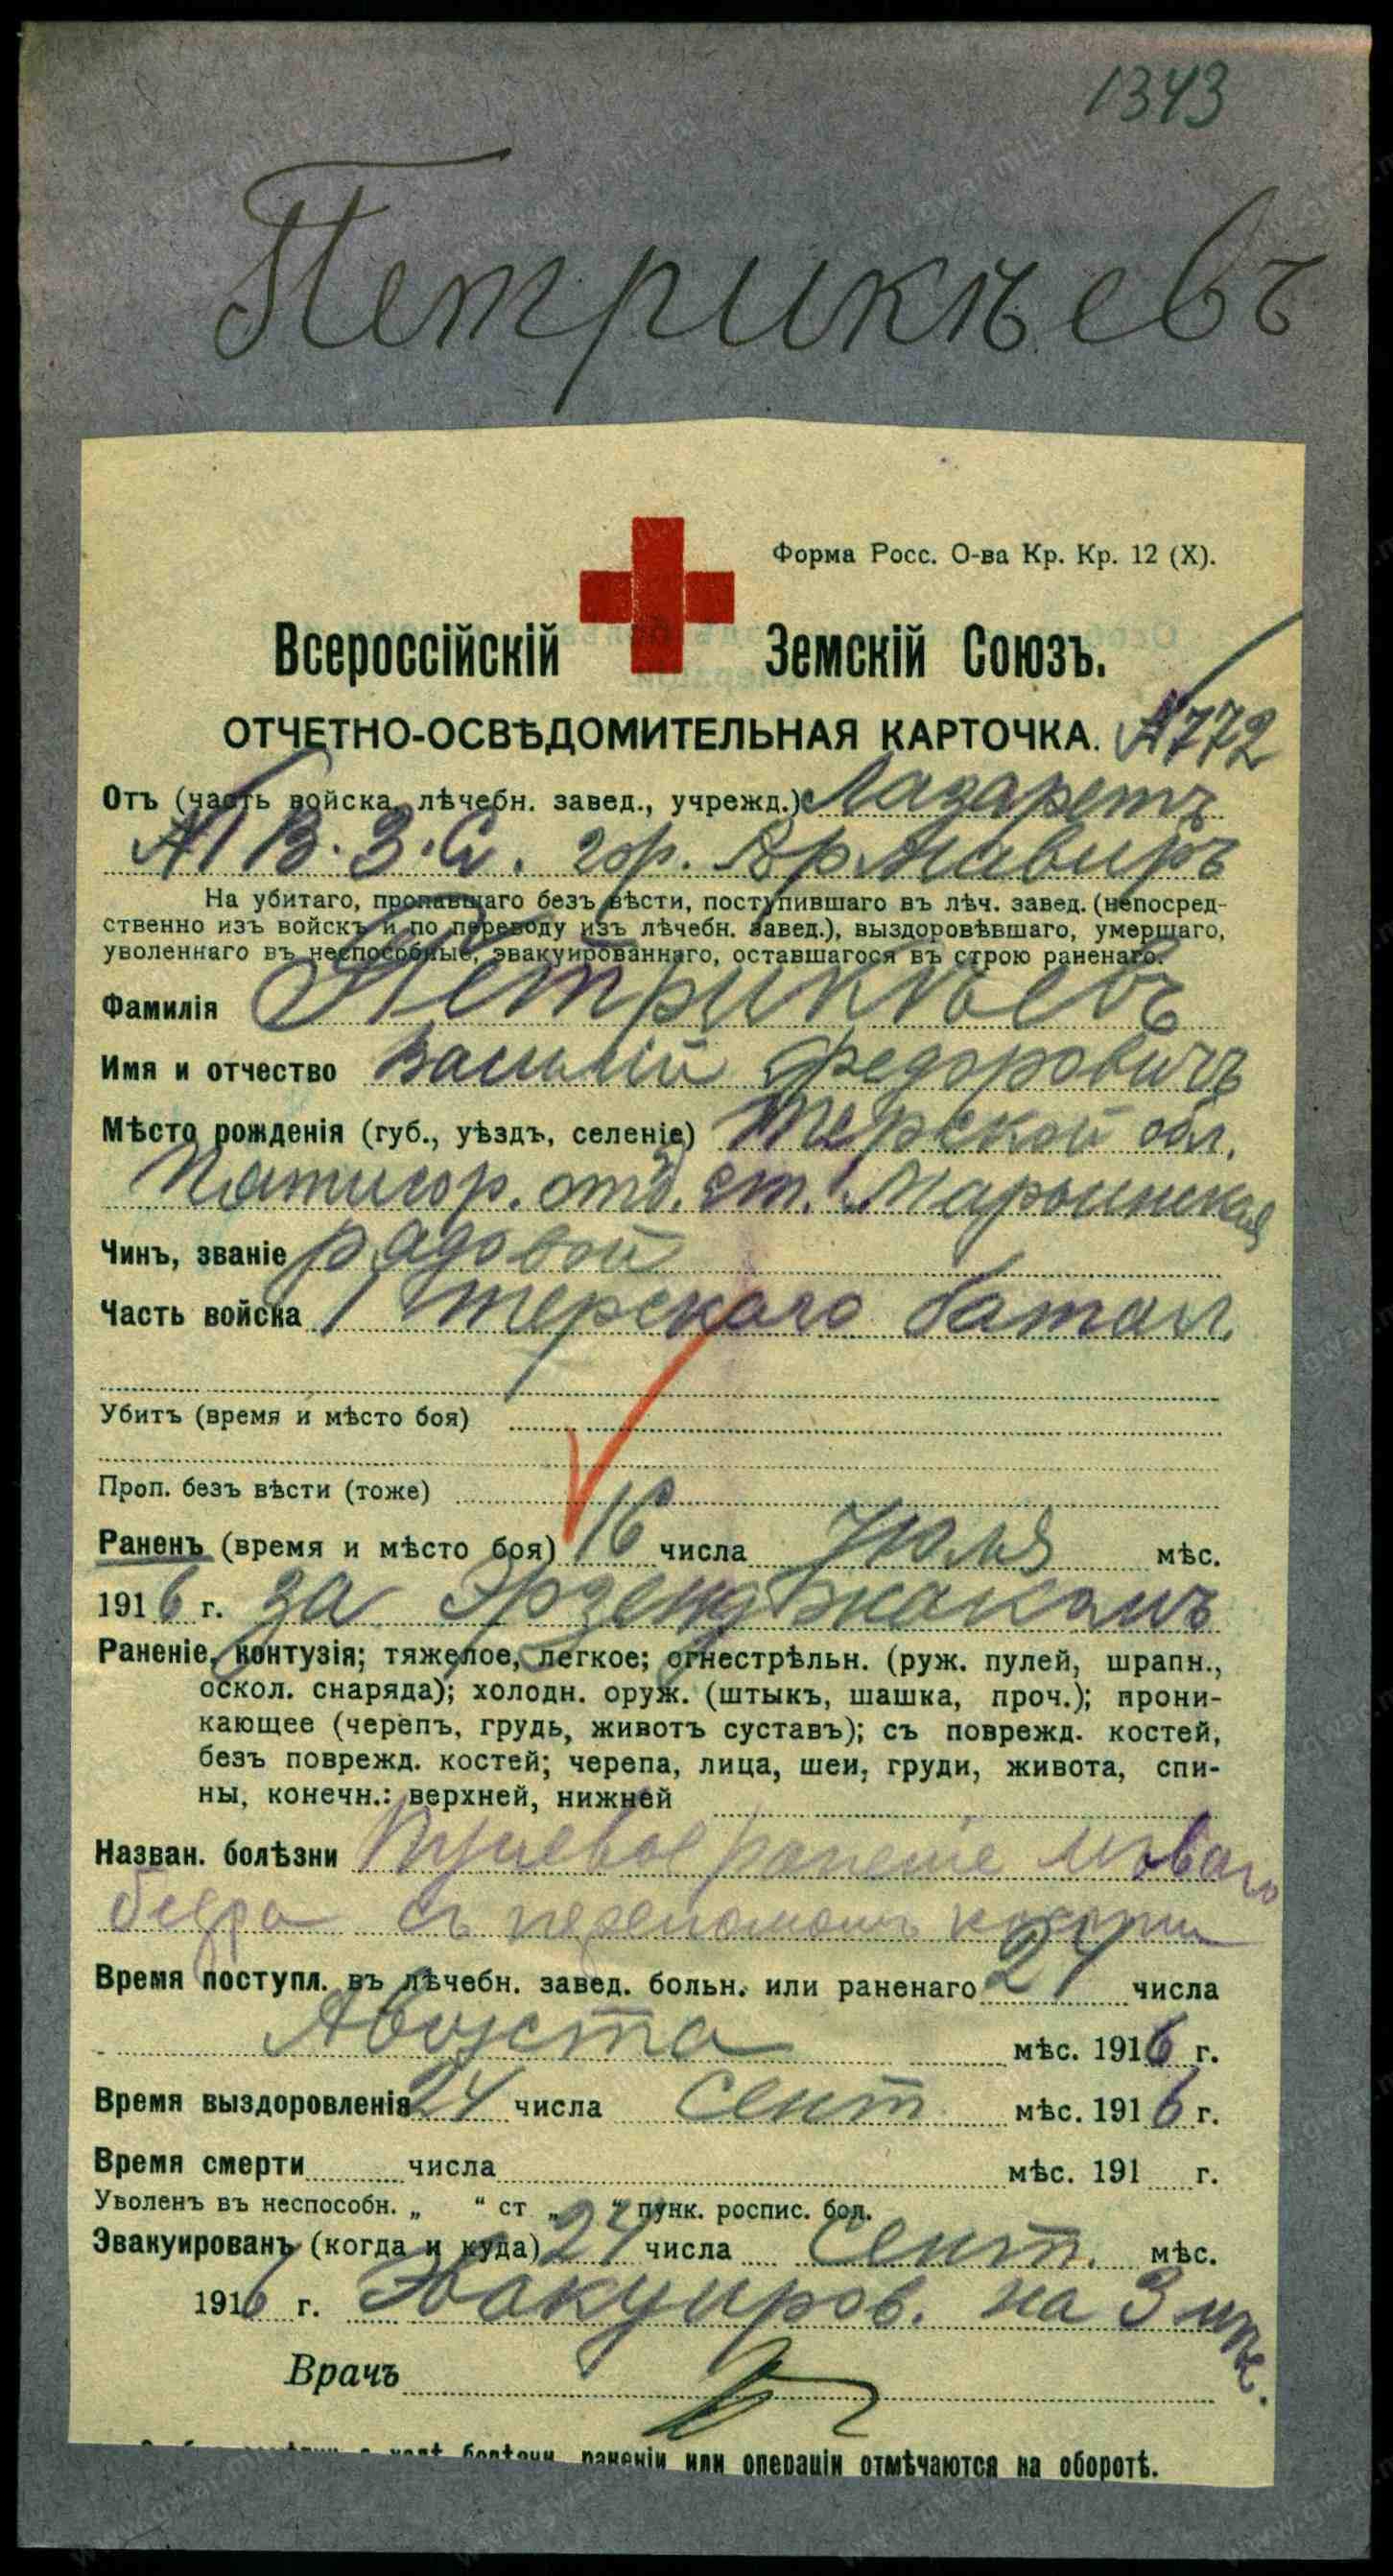 1343
Петрикѣевъ
Форма Росс. О-ва Кр. Кр. 12 (X).
Всероссійскій Земскій Союзъ.
ОТЧЕТНО-ОСВѢДОМИТЕЛЬНАЯ КАРТОЧКА. №772
Отъ (часть войска, лѣчебн. завед., учрежд.) Лазаретъ
№1 В.З.С. гор. Армавиръ
На убитаго, пропавшаго безъ вѣсти, поступившаго въ лѣч. завед. (непосред-
ственно изъ войскъ и по переводу изъ лѣчебн. завед.), выздоровѣвшаго, умершаго,
уволеннаго въ неспособные, эвакуированнаго, оставшагося въ строю раненаго.
Фамилія Петрикѣевъ
Имя и отчество Василій Федоровичъ
Мѣсто рожденія (губ., уѣздъ, селеніе) Терской обл.
Пятигор. отд. ст. Марьинская
Чинъ, званіе рядовой
Часть войска 1 Терского батал.
Убитъ (время и мѣсто боя)
Проп. безъ вѣсти (тоже)
Раненъ (время и мѣсто боя) 16 числа Июля мѣс.
1916 г. за Эрзенджаномъ
Раненіе, контузія; тяжелое, легкое; огнестрѣльн. (руж. пулей, шрапн.,
оскол. снаряда); холодн. оруж. (штыкъ, шашка, проч.); прони-
кающее (черепъ, грудь, животъ суставъ); съ поврежд. костей,
безъ поврежд. костей; черепа, лица, шеи, груди, живота, спи-
ны, конечн.: верхней, нижней
Назван. болѣзни Пулевое раненіе лѣваго
бедра съ переломомъ кости
Время поступл. въ лѣчебн. завед. больн. или раненаго 21 числа
Августа мѣс. 1916 г.
Время выздоровленія 24 числа Сент мѣс. 1916 г.
Время смерти числа мѣс. 191 г.
Уволенъ въ неспособн. „ “ ст „ “ пунк. роспис. бол.
Эвакуированъ (когда и куда) 24 числа Сент. мѣс.
1916 г. Эвакуиров. на 3 мѣс.
Врачъ
болѣзни, раненіи или операціи отмѣчаются на оборотѣ.